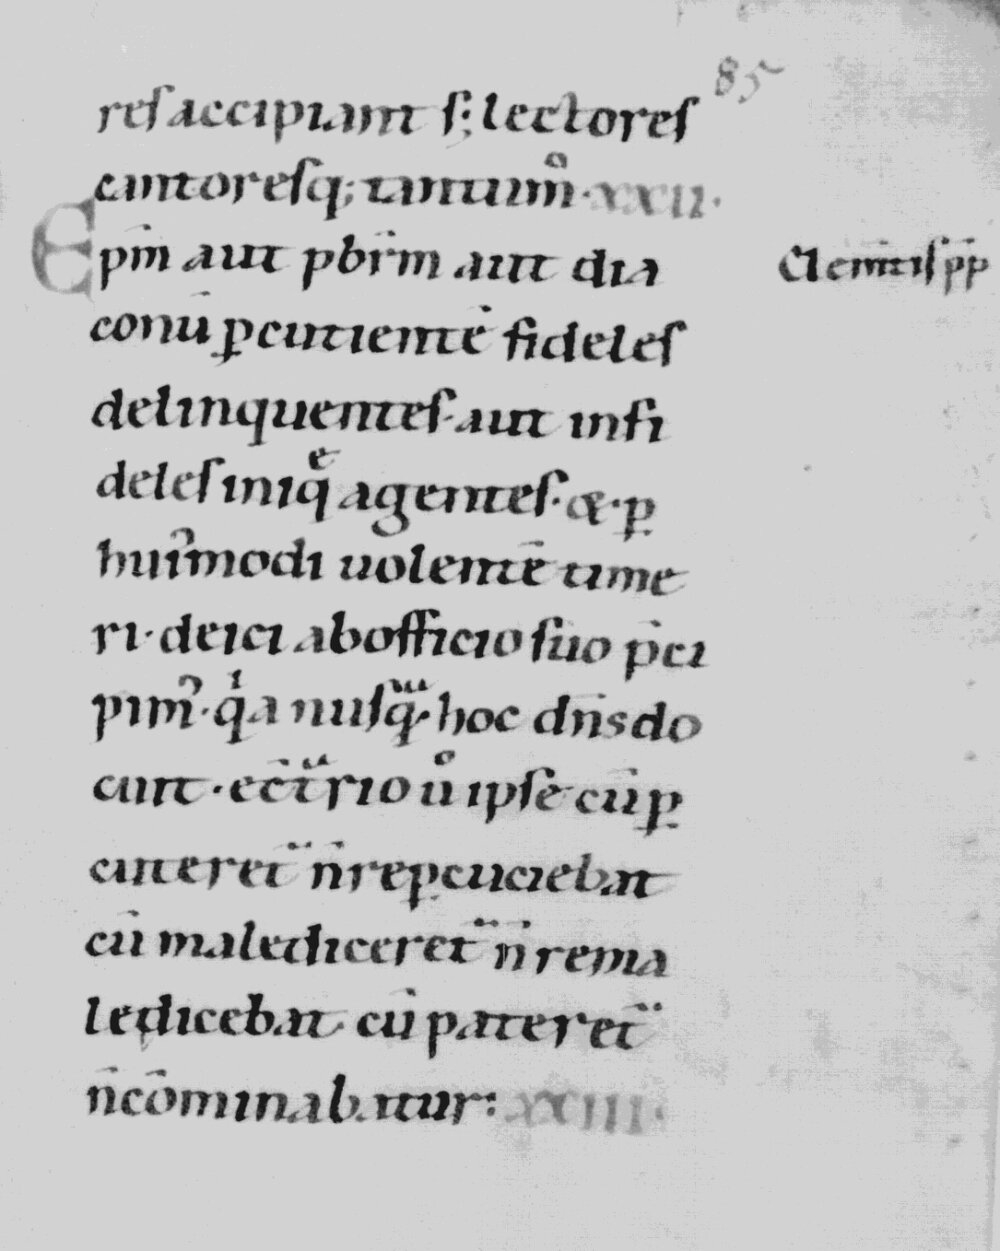 85
reſ accipiant ſ; lectoreſ
cantoreſq; tantum̊ · XXII ·
Ep̄m aut pb̄rm aut dia
Clem̄tiſ p̄p̄
conū ꝑcutientē fideleſ
delinquenteſ · aut infi
deleſ iniqͤ agenteſ · & · ꝑ
hui᾽modi uolentē time
ri · deici ab officio ſuo p̄ci
pim᾽ · qͥa nuſqᷓ · hoc dn̄s do
cuit · ec̄tᷓrio uͦ ipſe cū ꝑ
cuteret̄ n̄ repꝑcuciebat
cū malediceret̄ n̄ rema
ledicebat cū pateret̄
n̄ cōminabatur : XXIII ·